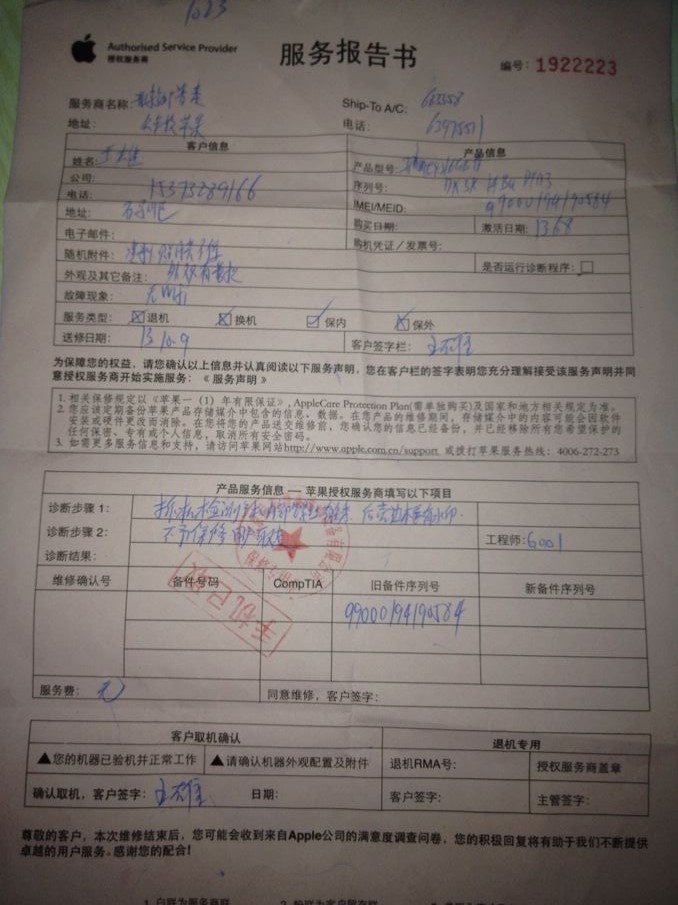 1023
Authorised Service Provider
授权服务商
服务报告书
编号: 1922223
服务商名称:
Ship-To A/C:
地址:
电话: 6397551
客户信息
产品信息
姓名:
产品型号:
公司:
序列号:
电话: 15373289166
IMEI/MEID: 99000194190584
地址: 石家庄
购买日期:
激活日期: 13.6.8
电子邮件:
购机凭证/发票号:
随机附件:
是否运行诊断程序:
外观及其它备注: 外观有磨损
故障现象:
服务类型: 退机 换机 保内 保外
送修日期: 13.10.9
客户签字栏:
为保障您的权益，请您确认以上信息并认真阅读以下服务声明，您在客户栏的签字表明您充分理解接受该服务声明并同
意授权服务商开始实施服务：《服务声明》
1. 相关保修规定以《苹果一（1）年有限保证》, AppleCare Protection Plan(需单独购买)及国家和地方相关规定为准。
2. 您应该定期备份苹果产品存储媒介中包含的信息、数据。在您产品的维修期间，存储媒介中的内容可能会因软件
安装或硬件更改而消除。在您将您的产品送交维修前，您确认您的信息已经备份，并已经移除所有您希望保护的
任何保密、专有或个人信息，取消所有安全密码。
3. 如需更多服务信息和支持，请访问苹果网站http://www.apple.com.cn/support 或拨打苹果服务热线：4006-272-273
产品服务信息 — 苹果授权服务商填写以下项目
诊断步骤 1: 拆机检测
诊断步骤 2: 不予保修
工程师: 6001
诊断结果:
维修确认号
备件号码
CompTIA
旧备件序列号
新备件序列号
手机已取
99000194190584
服务费: 元
同意维修，客户签字:
客户取机确认
退机专用
▲您的机器已验机并正常工作
▲请确认机器外观配置及附件
退机RMA号:
授权服务商盖章
确认取机，客户签字:
日期:
客户签字:
主管签字:
尊敬的客户，本次维修结束后，您可能会收到来自Apple公司的满意度调查问卷，您的积极回复将有助于我们不断提供
卓越的用户服务。感谢您的配合!